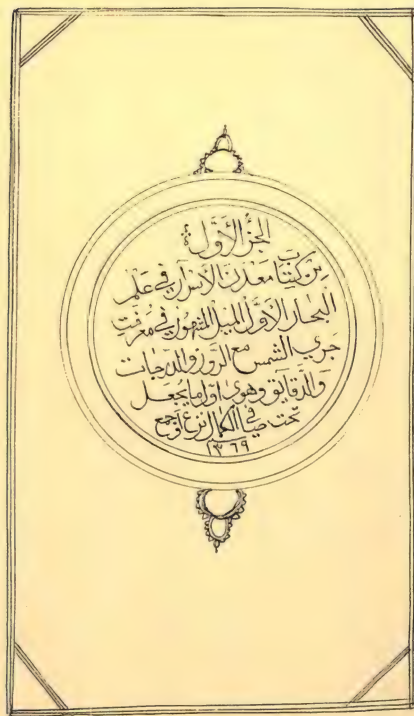 الجزؤ الأوّل
من كتاب معدن الأسرار في علم
البحار الأوّل الميل المشهور في معرفت
جري الشمس مع الروز والدرجات
والدقايق وهوى اول ما يجعل
تحت في الكمال نزع
١٣٦٩